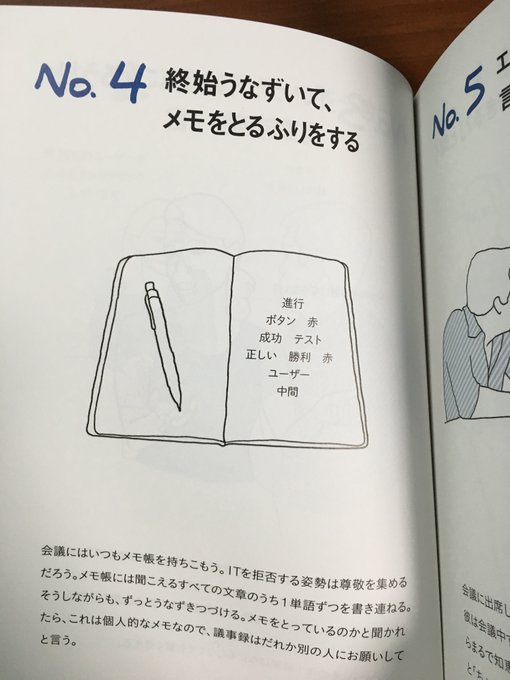 No. 4 終始うなずいて、
メモをとるふりをする
進行
ボタン 赤
成功 テスト
正しい 勝利 赤
ユーザー
中間
会議にはいつもメモ帳を持ちこもう。ITを拒否する姿勢は尊敬を集める
だろう。メモ帳には聞こえるすべての文章のうち1単語ずつを書き連ねる。
そうしながらも、ずっとうなずきつづける。メモをとっているのかと聞かれ
たら、これは個人的なメモなので、議事録はだれか別の人にお願いして
と言う。
No. 5 エ
言
会議に出席し
彼は会議中す
らまるで知恵
と「ち